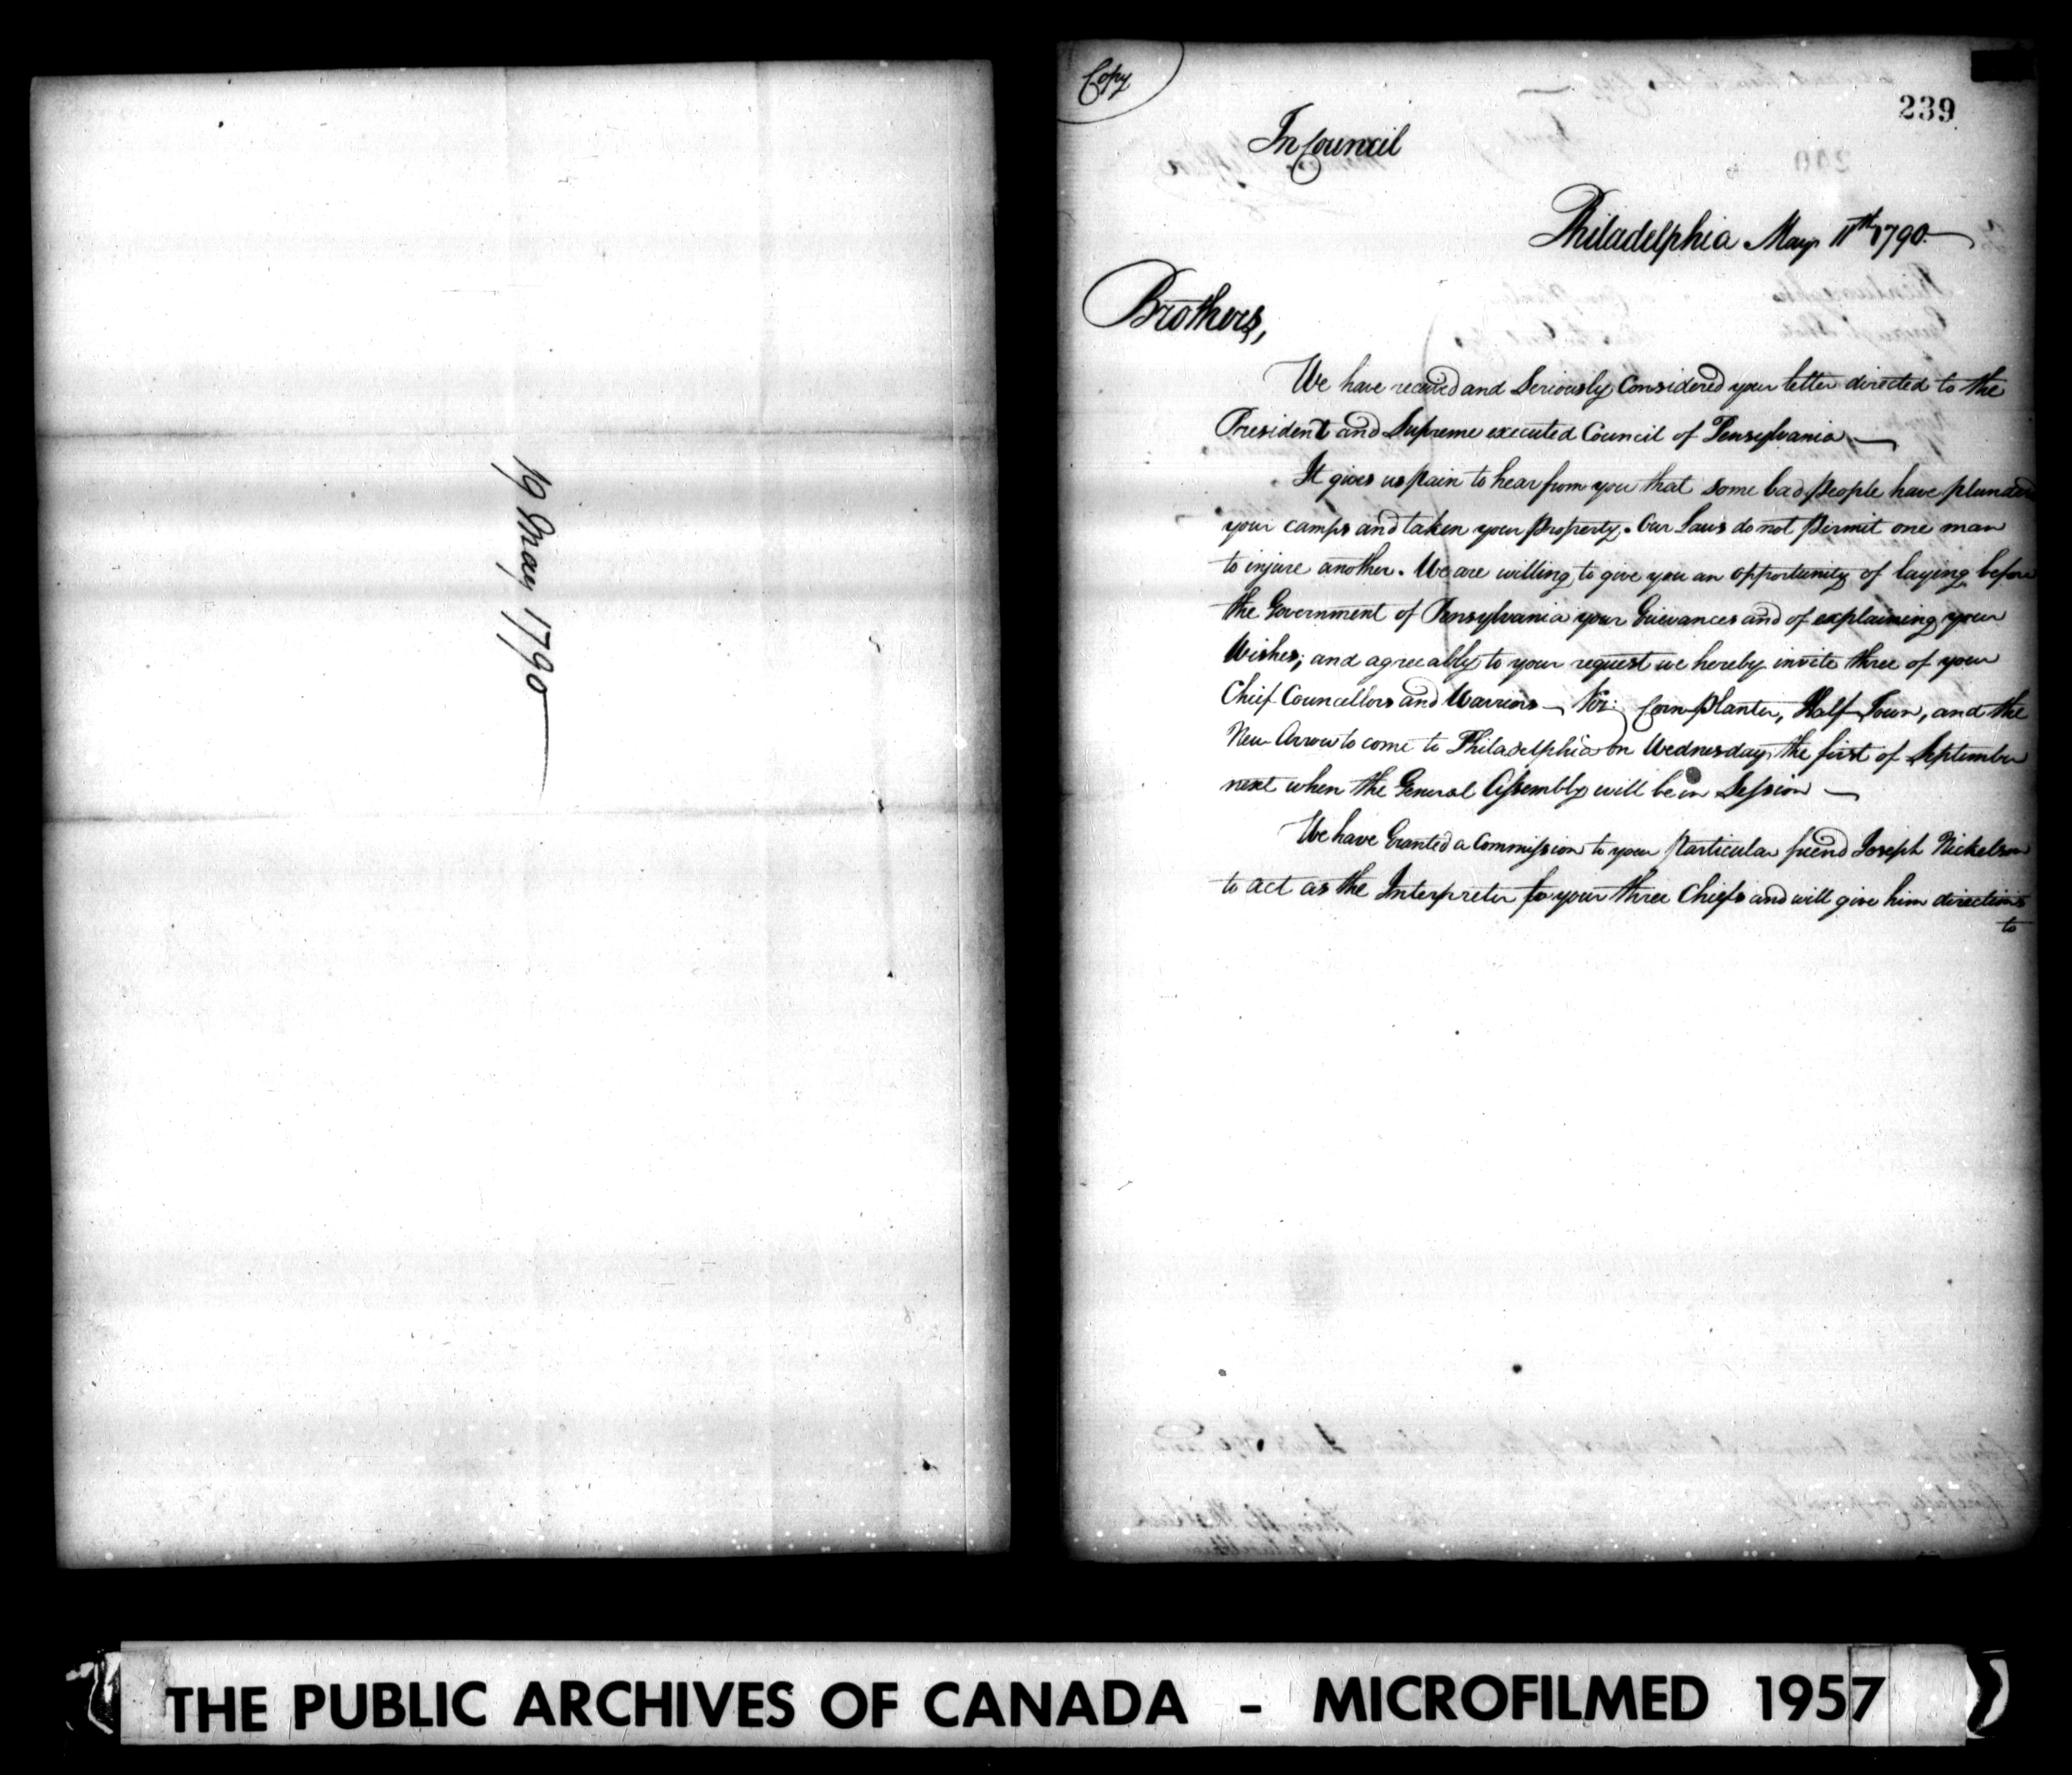 19 May 1790
Copy
239
In Council
Philadelphia May 11th 1790.
Brothers,
We have received and Seriously Considered your letter directed to the
President and Supreme executed Council of Pensylvania
It gives us pain to hear from you that some bad People have plundered
your camps and taken your Property. Our Laws do not Permit one man
to injure another. We are willing to give you an opportunity of laying before
the Government of Pensylvania your Grievances and of explaining your
Wishes; and agreeably to your request we hereby invite three of your
Chief Councellors and Warriors Viz: Corn-Planter, Half-Town, and the
New-Arrow to come to Philadelphia on Wednesday the first of September
next when the General Assembly will be in Session
We have Granted a Commission to your Particular friend Joseph Nickelson
to act as the Interpreter for your three Chiefs and will give him directions
to
THE PUBLIC ARCHIVES OF CANADA - MICROFILMED 1957